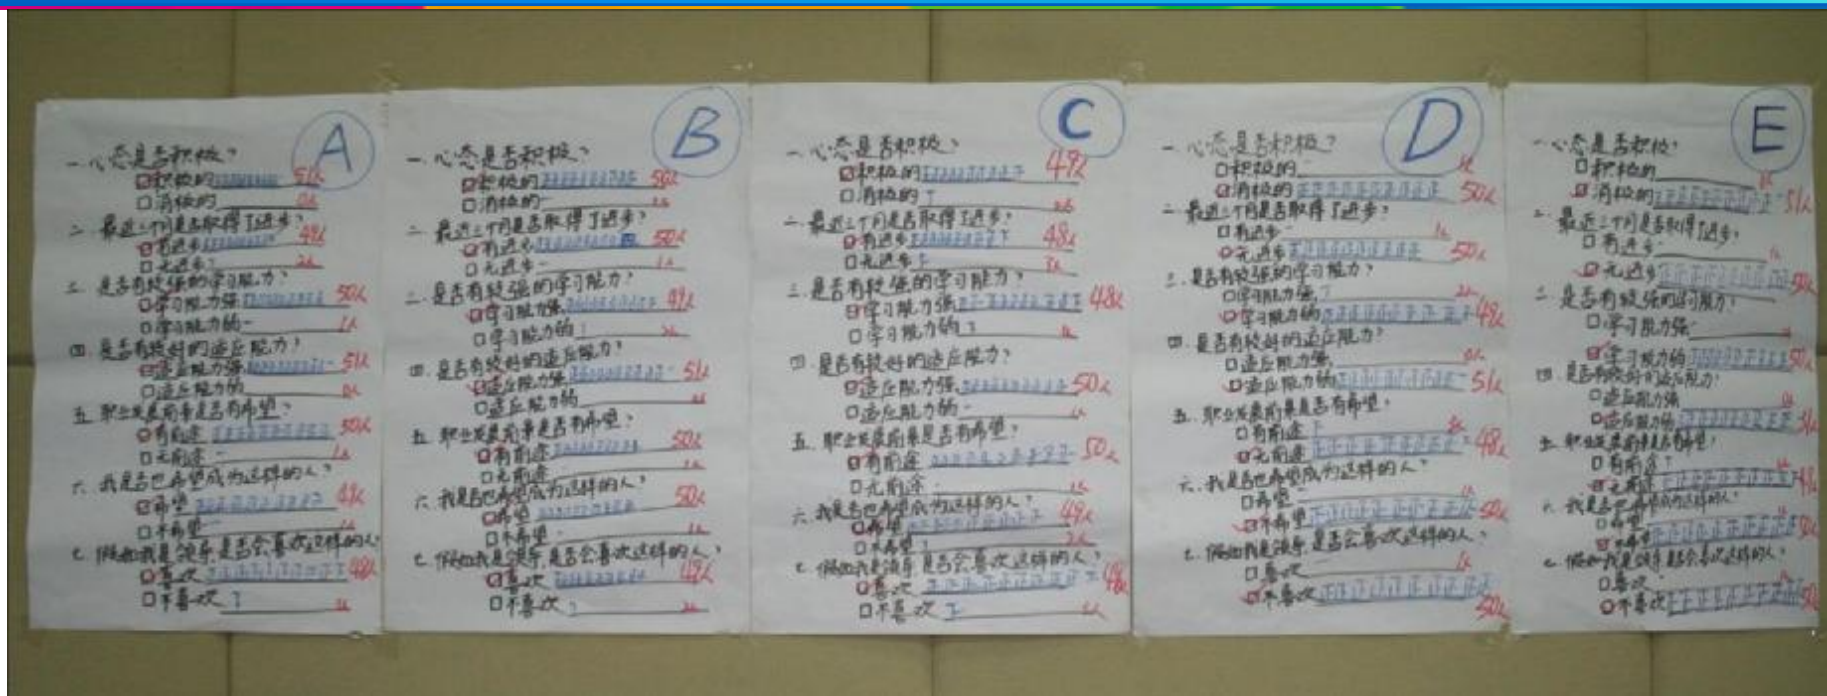 A
一. 心态是否积极?
积极的 51人
消极的 0人
二. 最近三个月是否取得了进步?
有进步 49人
无进步 2人
三. 是否有较强的学习能力?
学习能力强 50人
学习能力弱 1人
四. 是否有较好的适应能力?
适应能力强 51人
适应能力弱 0人
五. 职业发展前景是否有希望?
有前途 50人
无前途 1人
六. 我是否也希望成为这样的人?
希望 49人
不希望
七. 假如我是领导,是否会喜欢这样的人?
喜欢 48人
不喜欢
B
一. 心态是否积极?
积极的 50人
消极的 1人
二. 最近三个月是否取得了进步?
有进步 50人
无进步 1人
三. 是否有较强的学习能力?
学习能力强 49人
学习能力弱 2人
四. 是否有较好的适应能力?
适应能力强 51人
适应能力弱
五. 职业发展前景是否有希望?
有前途 50人
无前途 1人
六. 我是否也希望成为这样的人?
希望 50人
不希望 1人
七. 假如我是领导,是否会喜欢这样的人?
喜欢 49人
不喜欢 2人
C
一. 心态是否积极?
积极的 49人
消极的
二. 最近三个月是否取得了进步?
有进步 48人
无进步 3人
三. 是否有较强的学习能力?
学习能力强 48人
学习能力弱
四. 是否有较好的适应能力?
适应能力强 50人
适应能力弱 1人
五. 职业发展前景是否有希望?
有前途 50人
无前途 1人
六. 我是否也希望成为这样的人?
希望 49人
不希望 2人
七. 假如我是领导,是否会喜欢这样的人?
喜欢
不喜欢
D
一. 心态是否积极?
积极的 1人
消极的 50人
二. 最近三个月是否取得了进步?
有进步 1人
无进步 50人
三. 是否有较强的学习能力?
学习能力强 2人
学习能力弱 49人
四. 是否有较好的适应能力?
适应能力强 0人
适应能力弱 51人
五. 职业发展前景是否有希望?
有前途
无前途 48人
六. 我是否也希望成为这样的人?
希望 1人
不希望 50人
七. 假如我是领导,是否会喜欢这样的人?
喜欢 1人
不喜欢 50人
E
一. 心态是否积极?
积极的
消极的 51人
二. 最近三个月是否取得了进步?
有进步 1人
无进步 50人
三. 是否有较强的学习能力?
学习能力强
学习能力弱 50人
四. 是否有较好的适应能力?
适应能力强
适应能力弱 51人
五. 职业发展前景是否有希望?
有前途
无前途
六. 我是否也希望成为这样的人?
希望
不希望 50人
七. 假如我是领导,是否会喜欢这样的人?
喜欢
不喜欢 50人